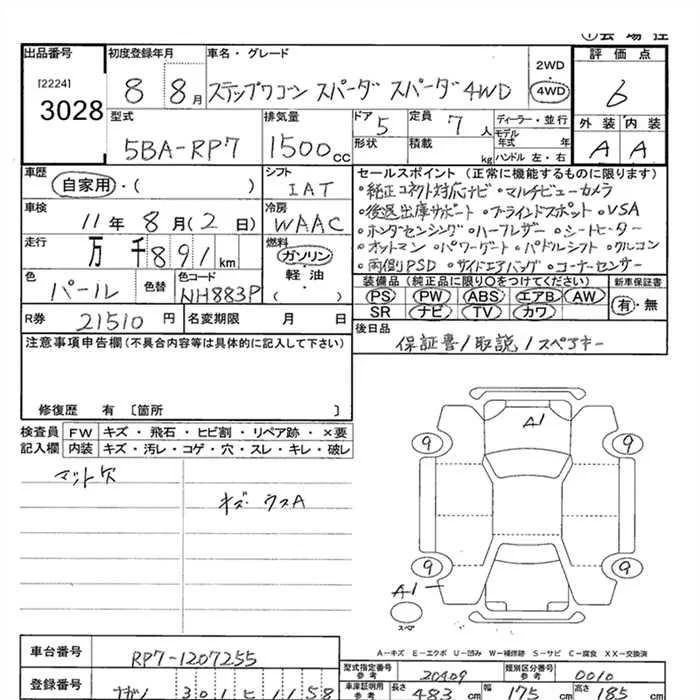 出品番号 初度登録年月 車名・グレード 評価点
[2224]
3028
8 8月 ステップワゴン スパーダ スパーダ4WD 2WD 4WD 6
型式 排気量 ドア 定員 ディーラー・並行 外装 内装
5BA-RP7 1500cc 5 7人 モデル年式 年
形状 積載 kg ハンドル 左・右 A A
車歴 自家用・( ) シフト IAT
セールスポイント (正常に機能するものに限ります)
・純正コネクト対応ナビ ・マルチビューカメラ
・後退出庫サポート ・ブラインドスポット ・VSA
・ホンダセンシング ・ハーフレザー ・シートヒーター
・オットマン ・パワーゲート ・パドルシフト ・クルコン
・両側PSD ・サイドエアバッグ ・コーナーセンサー
車検 11年 8月(2日) 冷房 WAAC
走行 万 千891km 燃料 ガソリン・軽油・( )
色 パール 色替 色コード NH883P
装備品 (純正品に限り○をつけてください) 新車保証書
PS PW ABS エアB AW 有・無
SR ナビ TV カワ
R券 21510円 名変期限 月 日
後日品 保証書/取説/スペアキー
注意事項申告欄(不具合内容等は具体的に記入して下さい)
修復歴 有 [箇所 ]
検査員 FW キズ・飛石・ヒビ割・リペア跡・×要
記入欄 内装 キズ・汚レ・コゲ・穴・スレ・キレ・破レ
マット欠
キズ・ウスA
A1
9 9
9 9
A1
スペア
A-キズ E-エクボ U-凹み W-補修跡 S-サビ C-腐食 XX-交換済
車台番号 RP7-1207255
型式指定番号 参考 20409 類別区分番号 参考 0010
登録番号 301 ヒ 1158
車庫証明用 参考 長さ 483cm 幅 175cm 高さ 185cm